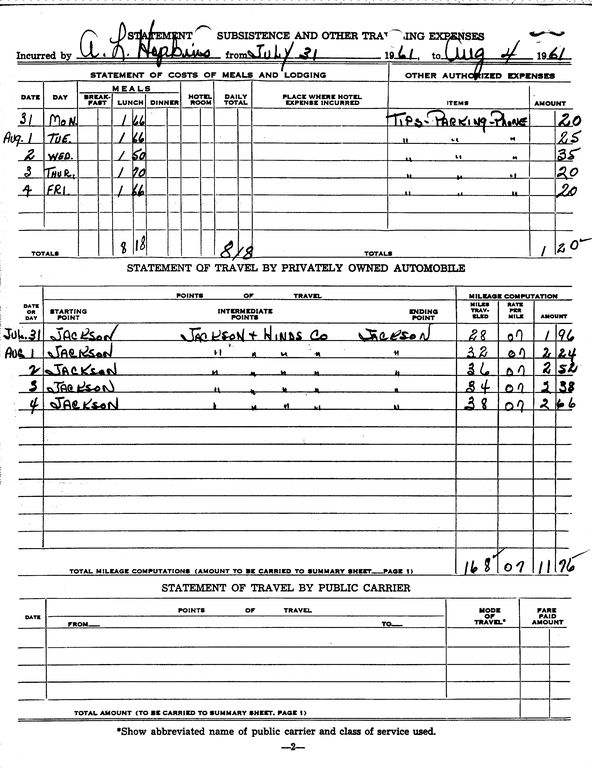 STATEMENT SUBSISTENCE AND OTHER TRAV ING EXPENSES
Incurred by A. L. Hopkins from July 31 1961, to Aug 4 1961
STATEMENT OF COSTS OF MEALS AND LODGING OTHER AUTHORIZED EXPENSES
DATE DAY MEALS BREAK-FAST LUNCH DINNER HOTEL ROOM DAILY TOTAL PLACE WHERE HOTEL EXPENSE INCURRED ITEMS AMOUNT
31 MON. 1 66 TIPS-PARKING-PHONE 20
Aug. 1 TUE. 1 66 " " " 25
2 WED. 1 50 " " " 35
3 THUR. 1 70 " " " 20
4 FRI. 1 66 " " " 20
TOTALS 8 18 8 18 TOTALS 1 20
STATEMENT OF TRAVEL BY PRIVATELY OWNED AUTOMOBILE
POINTS OF TRAVEL MILEAGE COMPUTATION
DATE OR DAY STARTING POINT INTERMEDIATE POINTS ENDING POINT MILES TRAV-ELED RATE PER MILE AMOUNT
JUL. 31 JACKSON JACKSON + HINDS CO JACKSON 28 07 1 96
AUG 1 JACKSON " " " " " 32 07 2 24
2 JACKSON " " " " " 36 07 2 52
3 JACKSON " " " " " 34 07 2 38
4 JACKSON " " " " " 38 07 2 66
TOTAL MILEAGE COMPUTATIONS (AMOUNT TO BE CARRIED TO SUMMARY SHEET PAGE 1) 168 07 11 76
STATEMENT OF TRAVEL BY PUBLIC CARRIER
DATE POINTS OF TRAVEL MODE OF TRAVEL* FARE PAID AMOUNT
FROM TO
TOTAL AMOUNT (TO BE CARRIED TO SUMMARY SHEET, PAGE 1)
*Show abbreviated name of public carrier and class of service used.
—2—